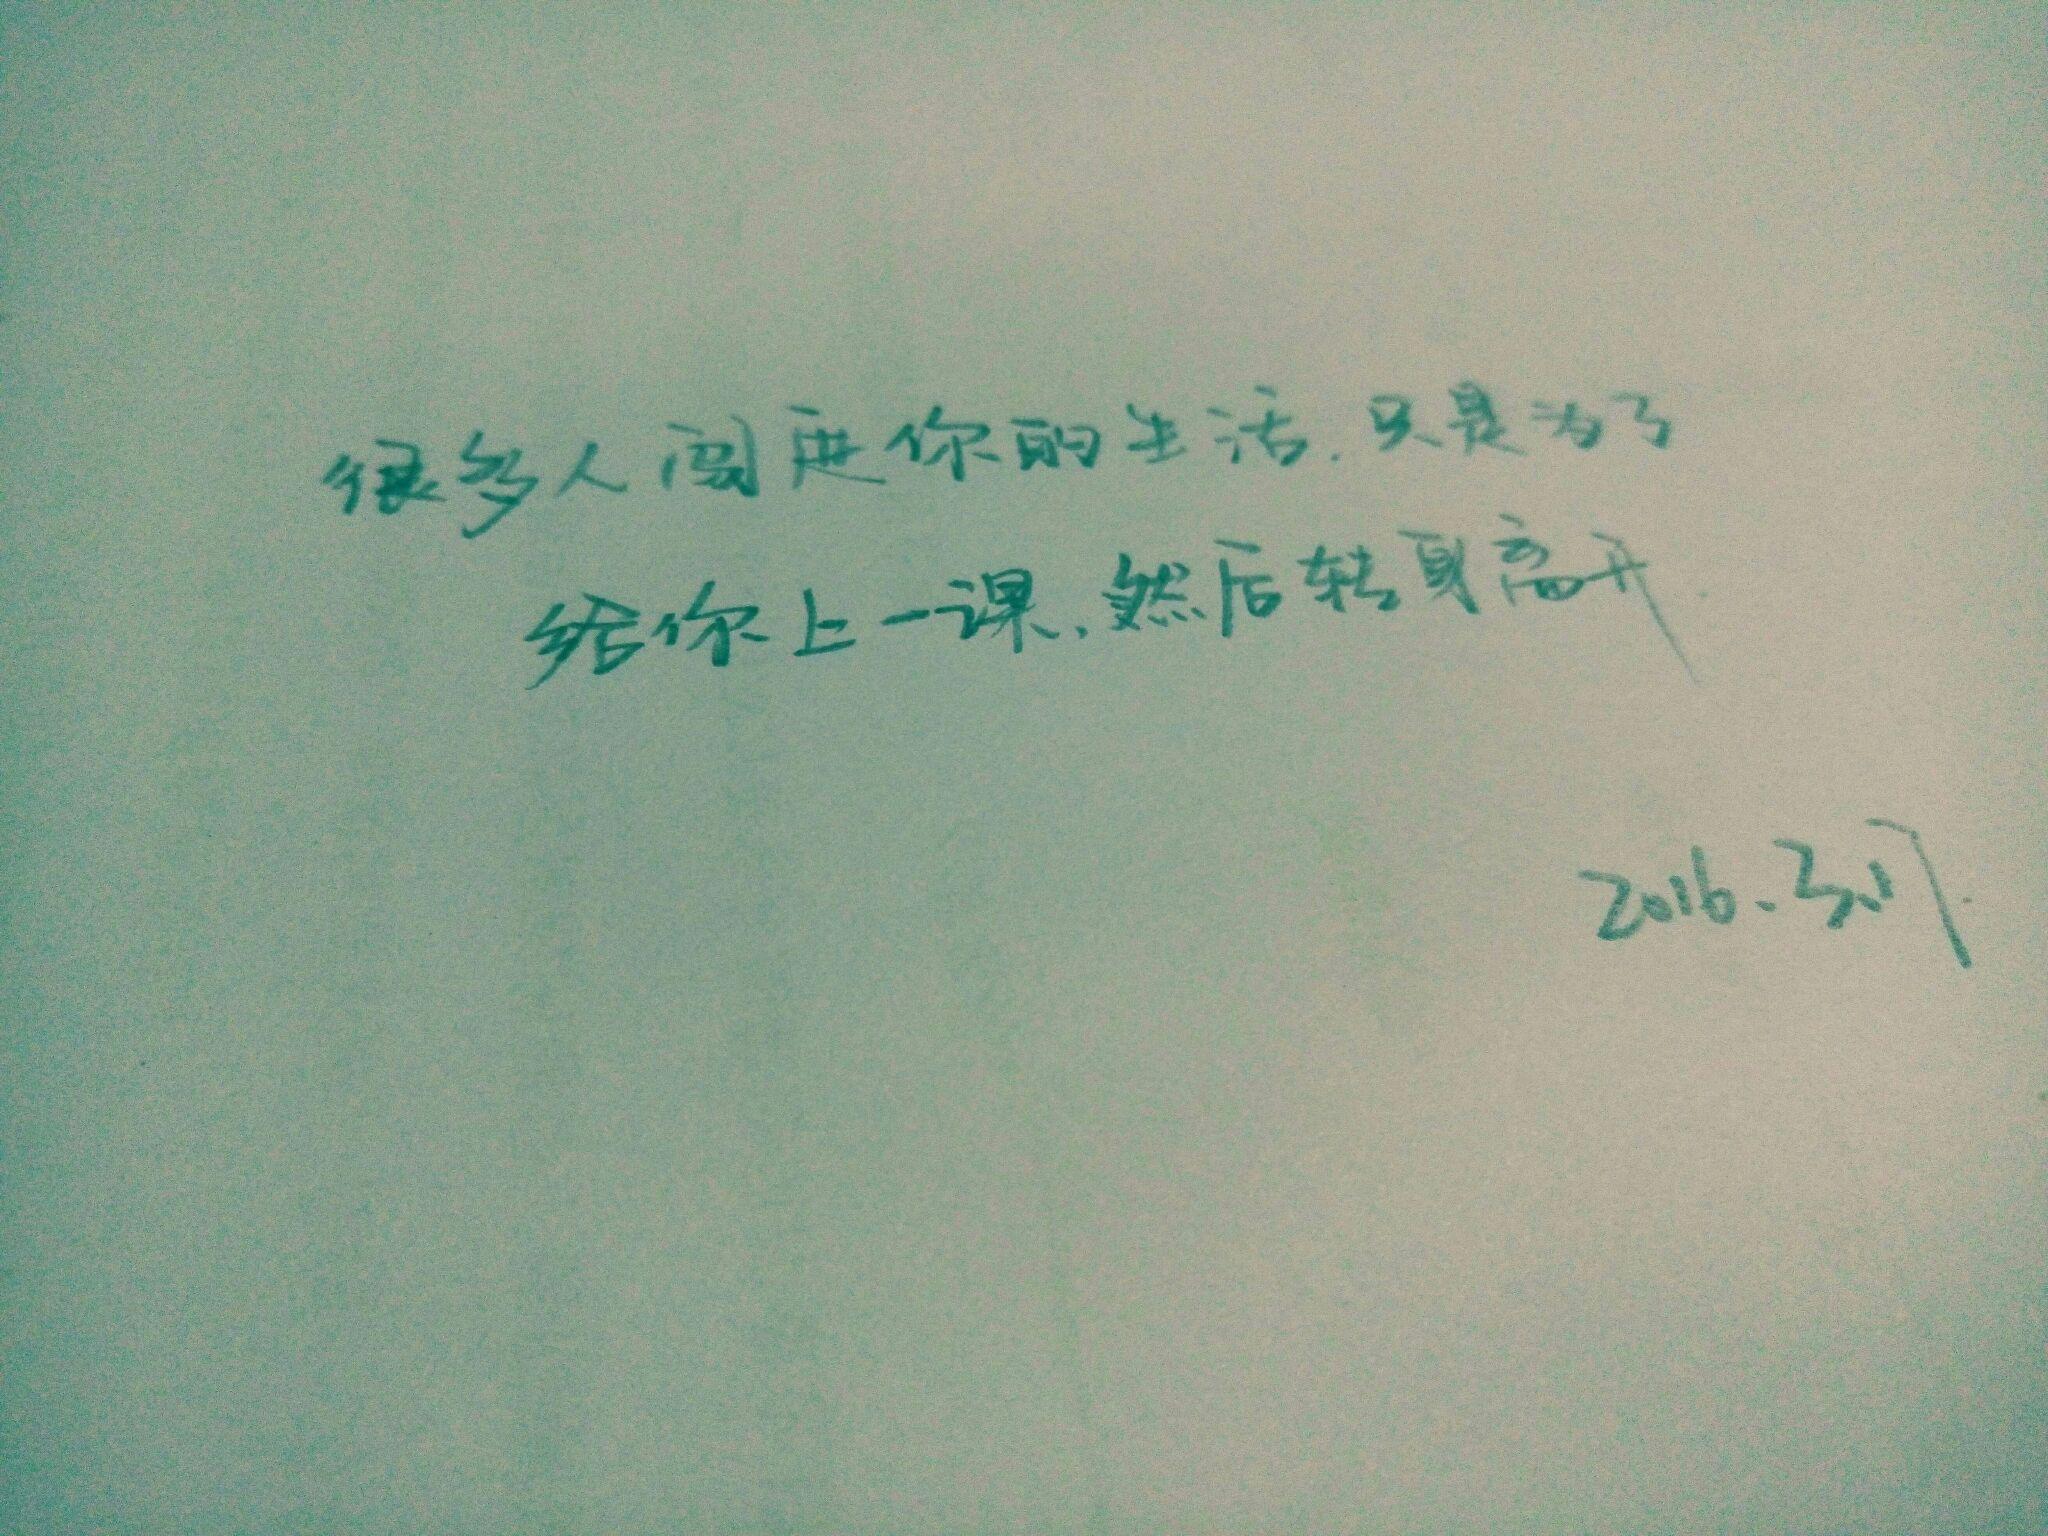 很多人闯进你的生活.只是为了
给你上一课,然后转身离开.
2016.3.17.